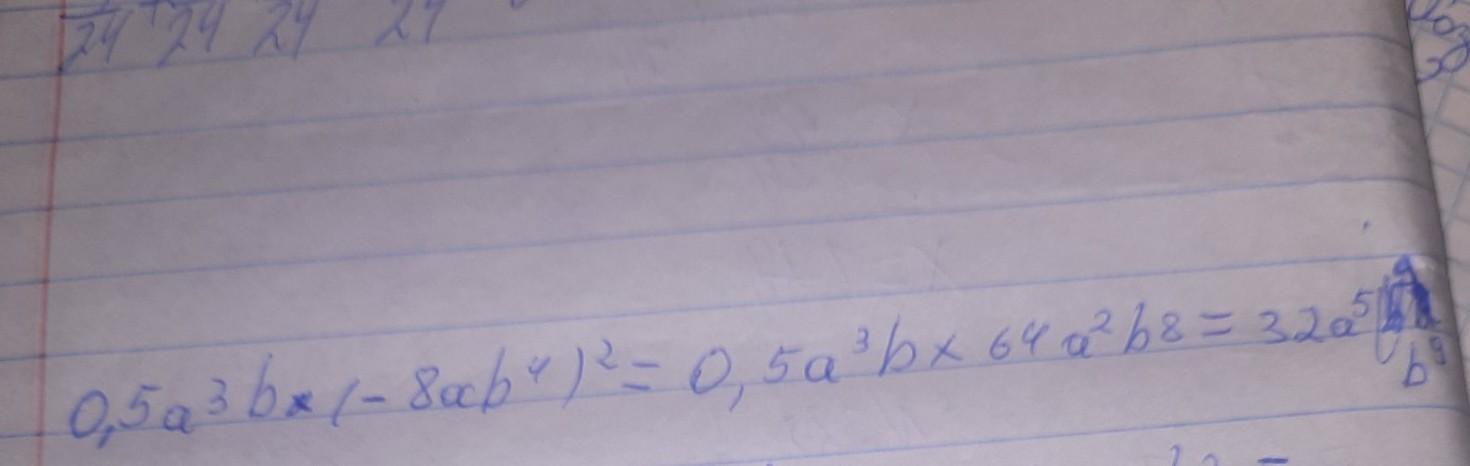 24 + 24 24 24
0,5a³b × (-8ab⁴)² = 0,5a³b × 64a²b8 = 32a⁵
b⁹